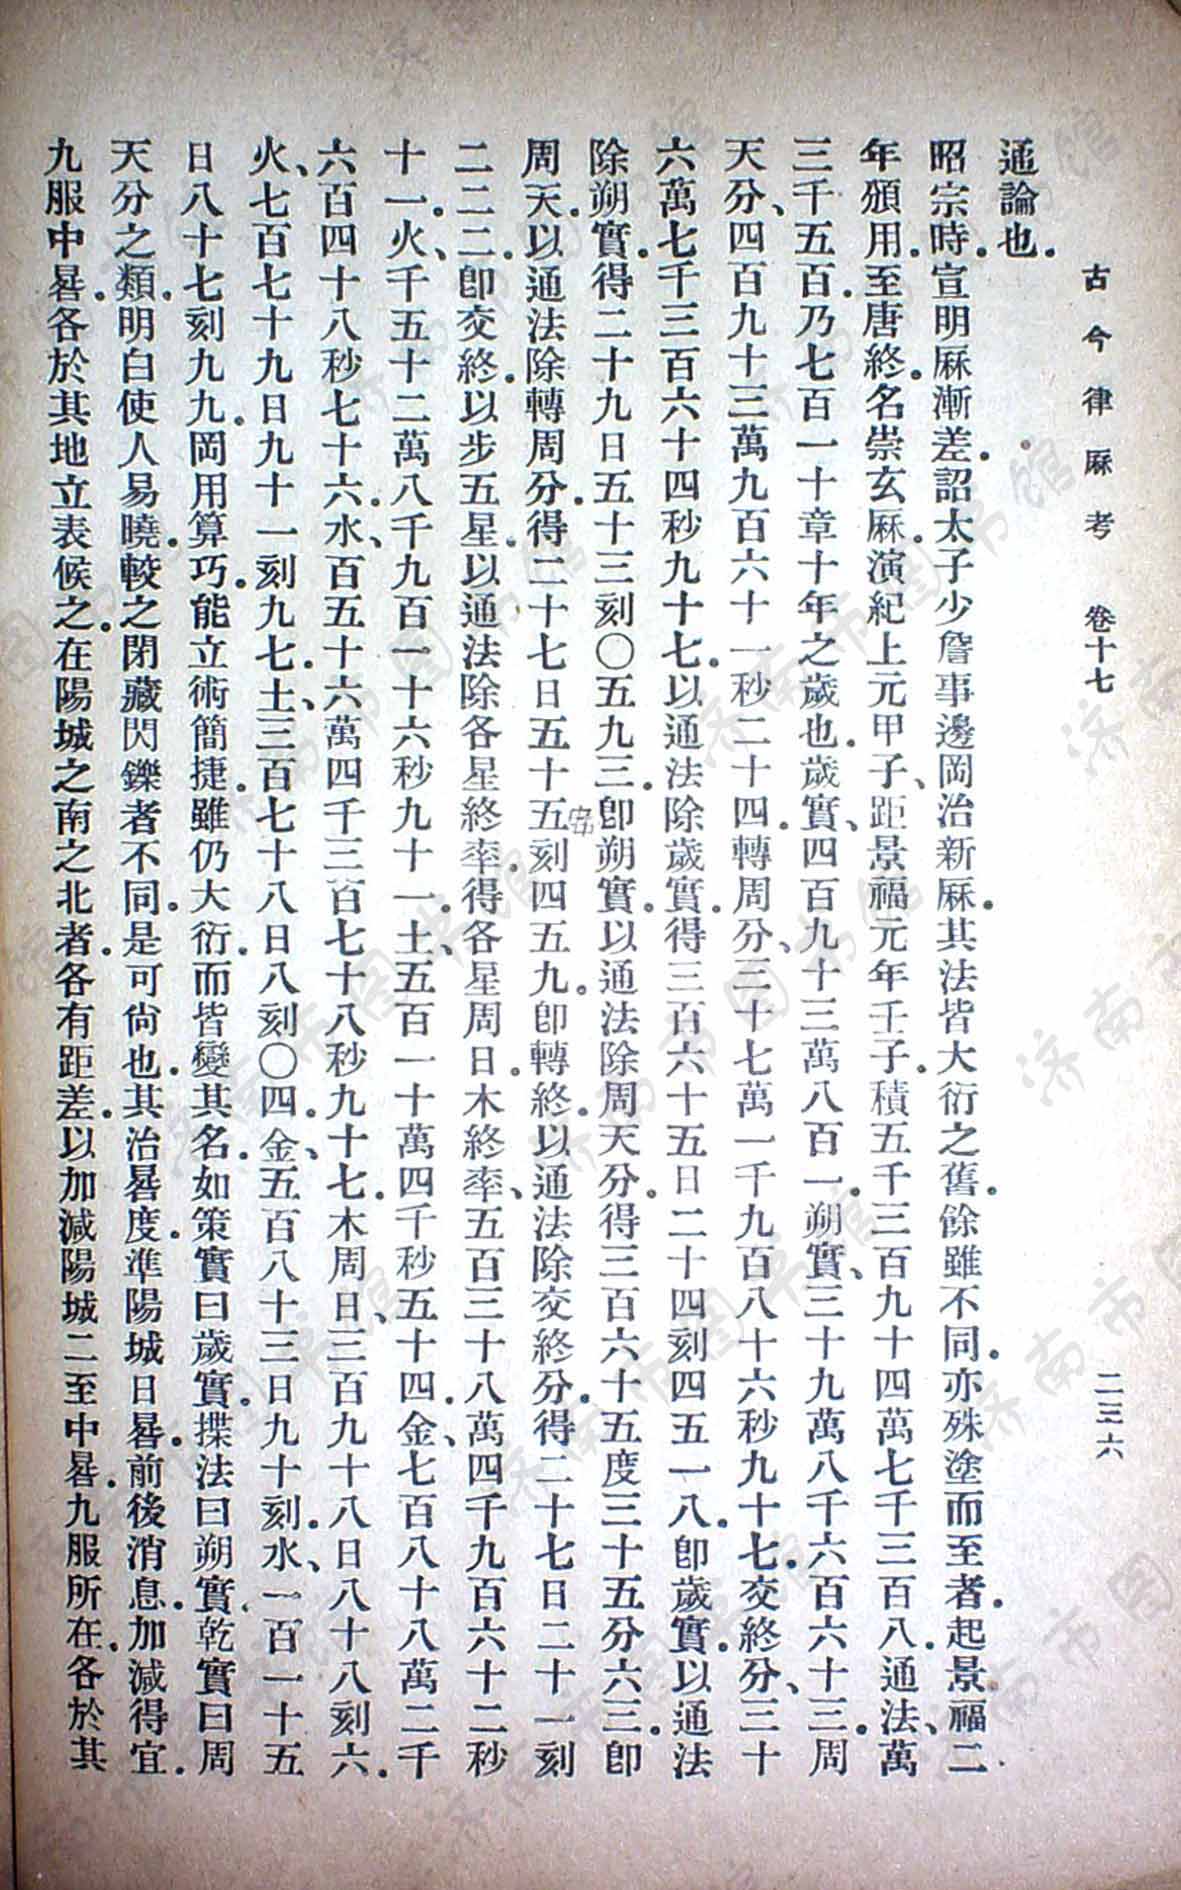 古今律厤考　卷十七　二三六
通論也。
昭宗時。宣明厤漸差。詔太子少詹事邊岡治新厤。其法皆大衍之舊。餘雖不同。亦殊塗而至者。起景福二
年頒用。至唐終。名崇玄厤。演紀上元甲子、距景福元年壬子。積五千三百九十四萬七千三百八。通法、萬
三千五百。乃七百一十章十年之歲也。歲實、四百九十三萬八百一。朔實、三十九萬八千六百六十三。周
天分、四百九十三萬九百六十一秒二十四。轉周分、三十七萬一千九百八十六秒九十七。交終分、三十
六萬七千三百六十四秒九十七。以通法除歲實。得三百六十五日二十四刻四五一八。卽歲實。以通法
除朔實。得二十九日五十三刻〇五九三。卽朔實。以通法除周天分。得三百六十五度三十五分六三。卽
周天。以通法除轉周分。得二十七日五十五刻四五九。卽轉終。以通法除交終分。得二十七日二十一刻
二二二。卽交終。以步五星。以通法除各星終率。得各星周日。木終率、五百三十八萬四千九百六十二秒
十一。火、千五十二萬八千九百一十六秒九十一。土、五百一十萬四千秒五十四。金、七百八十八萬二千
六百四十八秒七十六。水、百五十六萬四千三百七十八秒九十七。木周日、三百九十八日八十八刻六。
火、七百七十九日九十一刻九七。土、三百七十八日八刻〇四。金、五百八十三日九十刻。水、一百一十五
日八十七刻九九。岡用算巧。能立術簡捷。雖仍大衍。而皆變其名。如策實曰歲實。揲法曰朔實。乾實曰周
天分之類。明白使人易曉。較之閉藏閃鑠者不同。是可尙也。其治晷度。準陽城日晷。前後消息。加減得宜。
九服中晷。各於其地立表候之。在陽城之南之北者。各有距差。以加減陽城二至中晷。九服所在。各於其